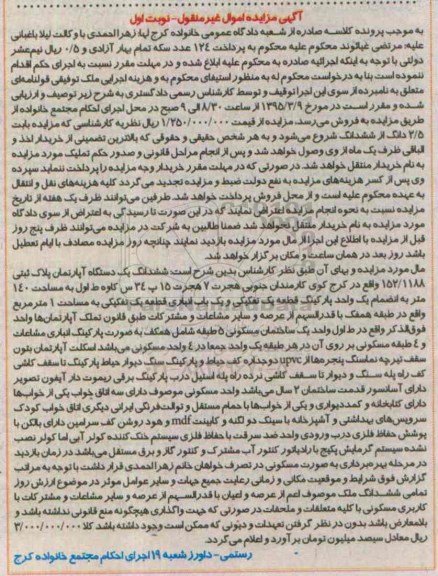 آگهی مزایده اموال غیرمنقول - نوبت اول
به موجب پرونده کلاسه صادره از شعبه دادگاه عمومی خانواده کرج لها زهرا احمدی با وکالت لیلا باغبانی
علیه: مرتضی غیاثوند محکوم علیه محکوم به پرداخت ۱۲۴ عدد سکه تمام بهار آزادی و ۰/۵ ریال نیم عشر
دولتی با توجه به اینکه اجرائیه صادره به محکوم علیه ابلاغ شده و در مهلت مقرر نسبت به اجرای حکم اقدام
ننموده است بنا به درخواست محکوم له به منظور استیفای محکوم به و هزینه اجرایی ملک توقیفی قولنامه‌ای
متعلق به نامبرده از سوی این اجرا توقیف و توسط کارشناس رسمی دادگستری به شرح زیر توصیف و ارزیابی
شده و مقرر است در مورخ ۱۳۹۵/۳/۹ از ساعت ۸/۳۰ الی ۹ صبح در محل اجرای احکام مجتمع خانواده از
طریق مزایده به فروش می‌رسد. مزایده از قیمت ۱/۲۵۰/۰۰۰/۰۰۰ ریال نظریه کارشناسی که مزایده بابت
۲/۵ دانگ از ششدانگ شروع می‌شود و به هر شخص حقیقی و حقوقی که بالاترین تضمینی از خریدار اخذ و
الباقی ظرف یک ماه از وی وصول خواهد شد و پس از انجام مراحل قانونی و صدور حکم تملیک مورد مزایده
به نام خریدار منتقل خواهد شد. در صورتی که در مهلت مقرر خریدار وجه مزایده را پرداخت ننماید سپرده
وی پس از کسر هزینه‌های مزایده به نفع دولت ضبط و مزایده تجدید می گردد کلیه هزینه‌های نقل و انتقال
به عهده محکوم علیه است و از محل فروش پرداخت خواهد شد. طرفین می‌توانند ظرف یک هفته از تاریخ
مزایده نسبت به نحوه انجام مزایده اعتراض نمایند که در این صورت تا رسیدگی به اعتراض از سوی دادگاه
مورد مزایده به نام خریدار منتقل نخواهد شد ضمنا طالبین به شرکت در مزایده می‌توانند ظرف پنج روز
قبل از مزایده با اطلاع این اجرا از مال مورد مزایده بازدید نمایند چنانچه روز مزایده مصادف با ایام تعطیل
باشد روز بعد در همان ساعت و مکان برگزار خواهد شد.
مال مورد مزایده و بهای آن طبق نظر کارشناس بدین شرح است: ششدانگ یک دستگاه آپارتمان پلاک ثبتی
۱۵۲/۱۱۸۸ واقع در کرج کوی کارمندان جنوبی هجرت ۷ هجرت ۱۵ پ ۳۴ س کاوه ط اول به مساحت ۱۴۰
متر به انضمام یک واحد پارکینگ قطعه یک تفکیکی و یک باب انباری قطعه یک تفکیکی به مساحت ۱ مترمربع
واقع در طبقه همکف با قدرالسهم از عرصه و سایر مشاعات و مشترکات طبق قانون تملک آپارتمان‌ها واحد
فوق‌الذکر واقع در ط اول واحد یک ساختمان مسکونی ۵ طبقه شامل همکف به صورت پارکینگ انباری مشاعات
و ۴ طبقه مسکونی بر روی آن در هر طبقه یک واحد جمعا در ۴ واحد مسکونی می‌باشد اسکلت آپارتمان بتون
سقف تیرچه نماسنگ پنجره‌ها از upvc دوجداره کف حیاط و پارکینگ سنگ دیوار حیاط پارکینگ تا سقف کاشی
کف راه پله سنگ و دیوار تا سقف کاشی نرده راه پله استیل درب پارکینگ برقی ریموت دار آیفون تصویر
دارای آسانسور قدمت ساختمان ۲ سال می‌باشد واحد مسکونی موصوف دارای سه اتاق خواب یکی از خواب‌ها
دارای کتابخانه و کمددیواری و یکی از خواب‌ها با حمام مستقل و توالت فرنگی ایرانی دیگری اتاق خواب کودک
سرویس‌های بهداشتی و آشپزخانه با سینک دو لگنه و کابینت mdf و هود روشن کف سرامین دارای بالکن با
پوشش حفاظ فلزی درب ورودی واحد ضد سرقت با حفاظ فلزی سیستم خنک کننده کولر آبی اما کولر نصب
نشده سیستم گرمایش پکیج با رادیاتور کنتور آب مشترک و کنتور گاز و برق مستقل می‌باشد در زمان بازدید
در مرحله بهره‌برداری به صورت مسکونی در تصرف خواهان خانم زهرا احمدی قرار داشت با توجه به مراتب
گزارش فوق شرایط و موقعیت مکانی و زمانی رعایت جمیع جهات و سایر عوامل موثر در موضوع ارزش روز
تمامی ششدانگ ملک موصوف اعم از عرصه و اعیان با قدرالسهم از عرصه و سایر مشاعات و مشترکات با
کاربری مسکونی با کلیه متعلقات و ملحقات در صورتی که جهت واگذاری هیچگونه منع قانونی نداشته باشد و
بلامعارض باشد بدون در نظر گرفتن تعهدات و دیونی که ممکن است وجود داشته باشد کلا ۳/۰۰۰/۰۰۰/۰۰۰
ریال معادل سیصد میلیون تومان برآورد و اعلام می‌گردد.
رستمی - داورز شعبه ۱۹ اجرای احکام مجتمع خانواده کرج